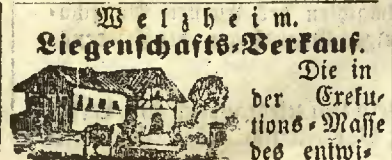 Welzheim.
Liegenschafts-Verkauf.
Die in
der Exeku-
tions-Masse
des entwi-